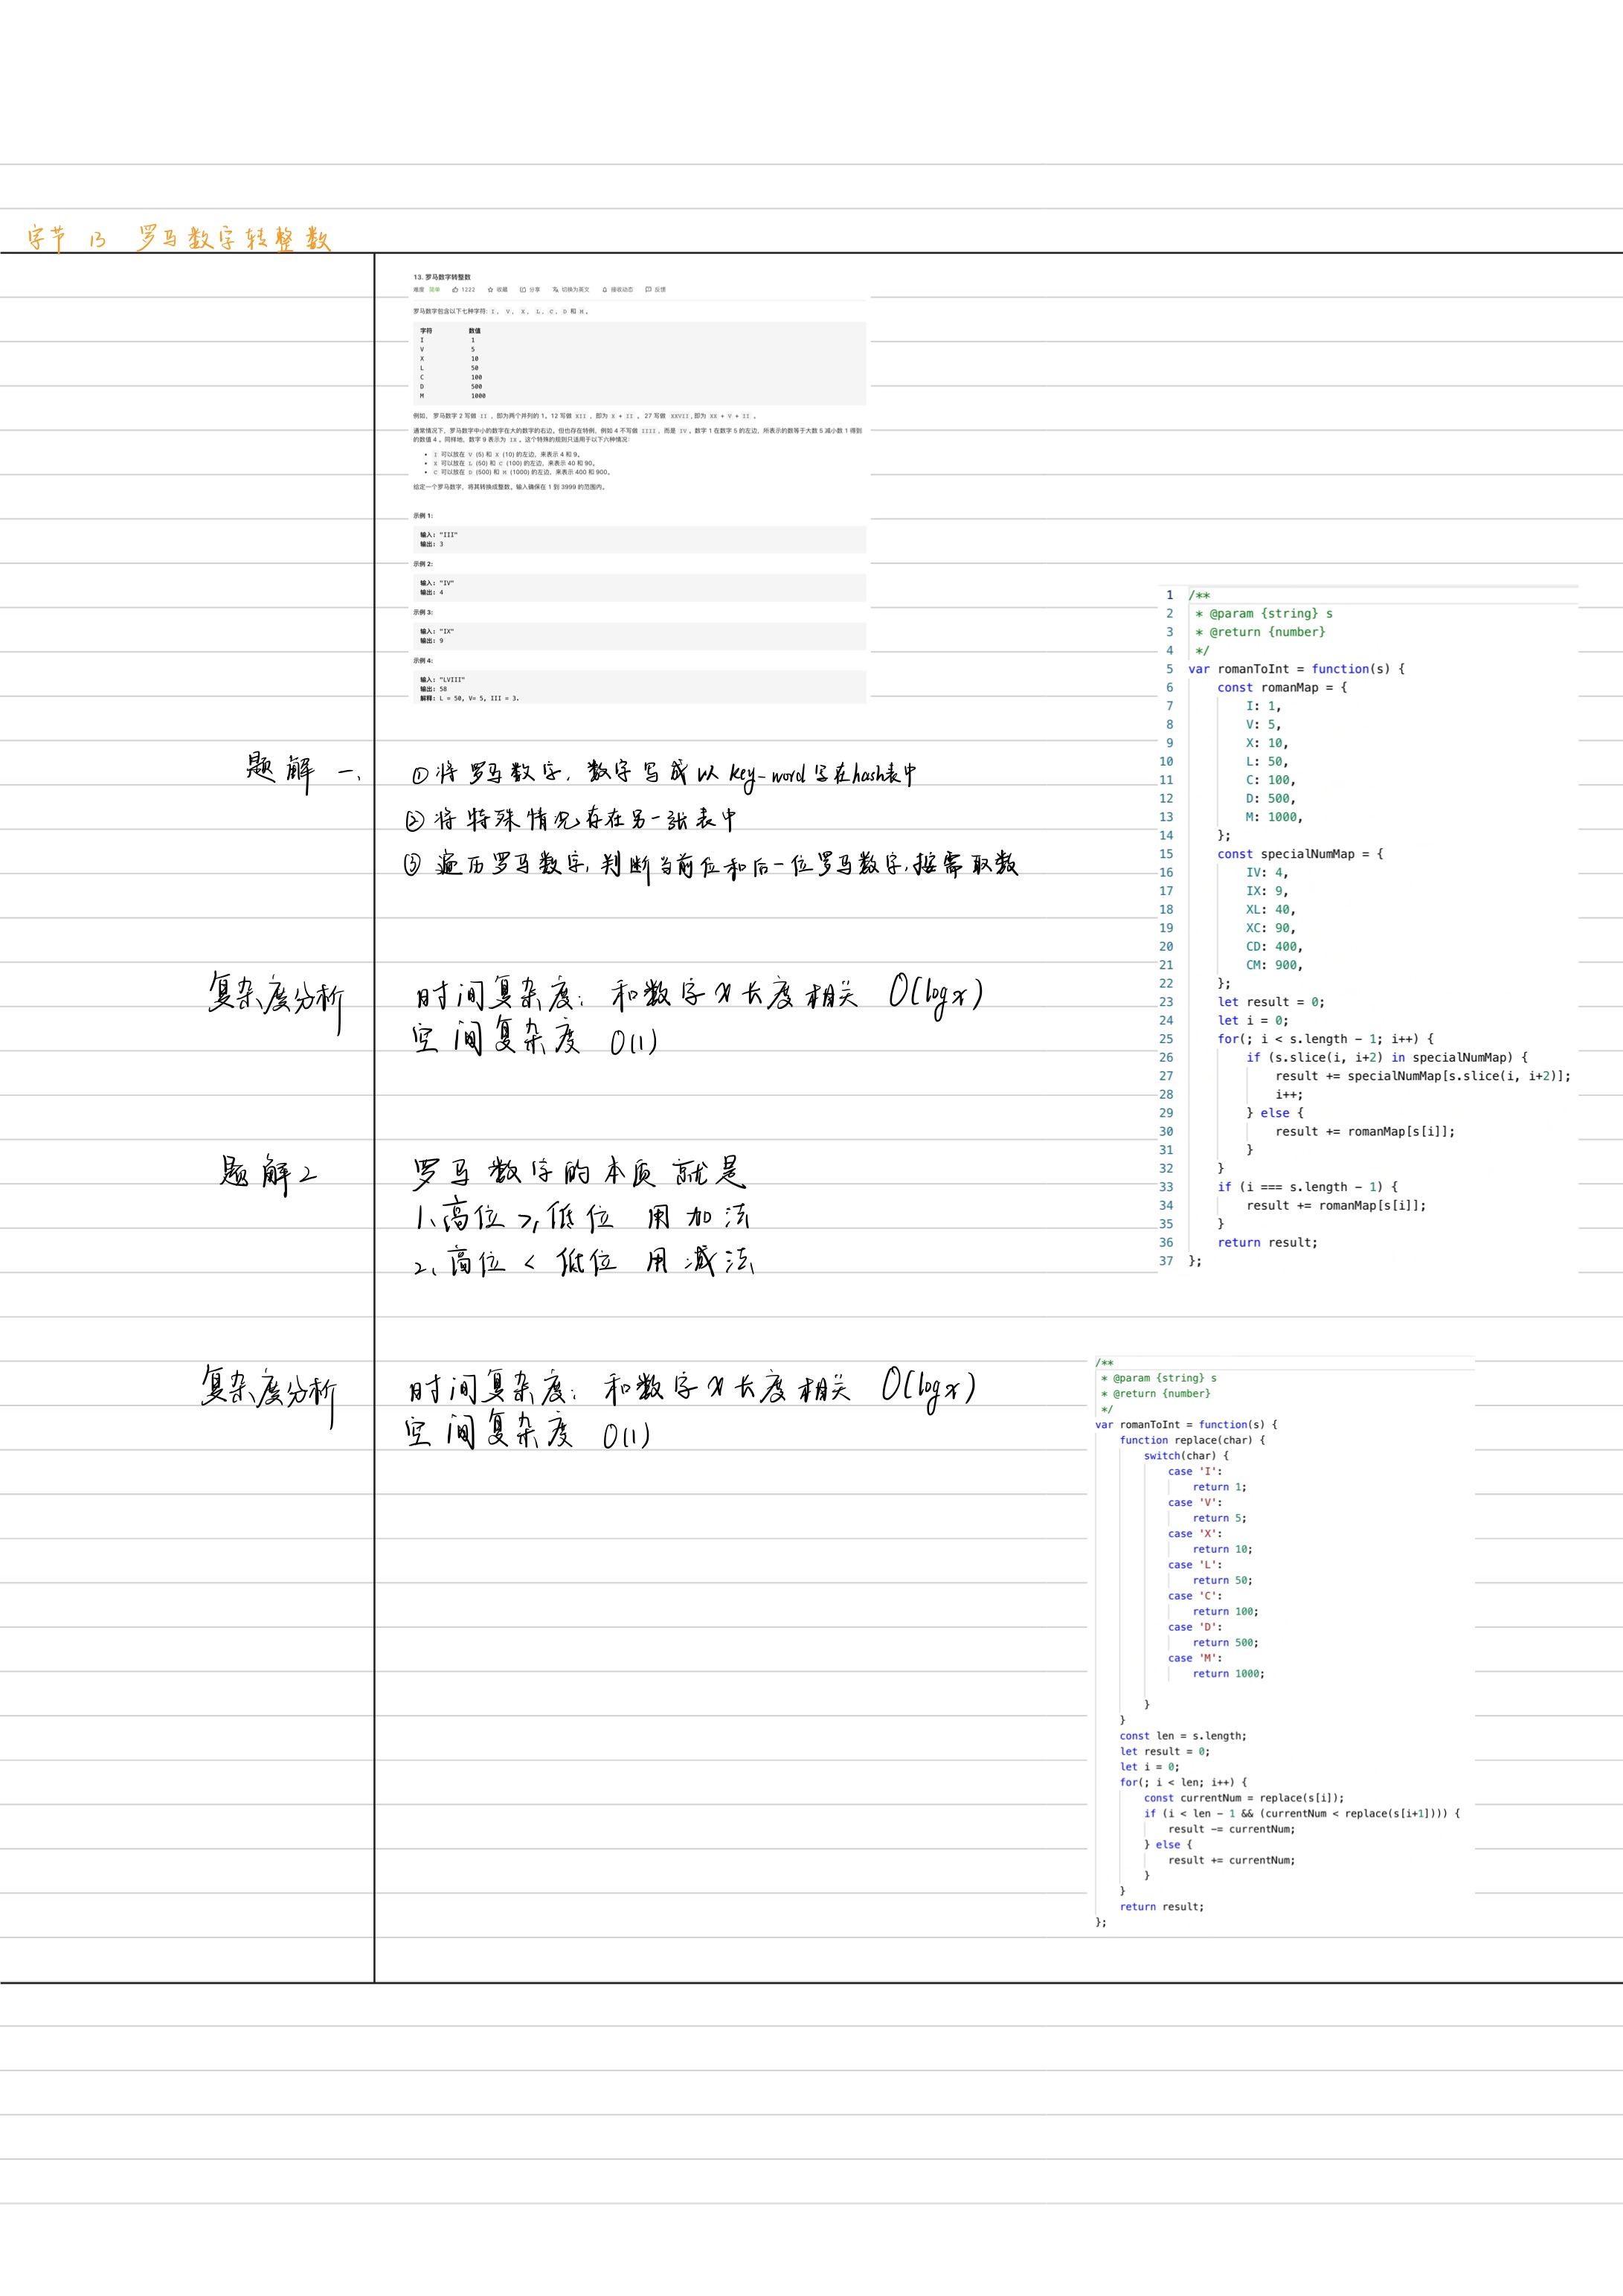 字节 13 罗马数字转整数
13. 罗马数字转整数
难度 简单 1222 收藏 分享 切换为英文 接收动态 反馈
罗马数字包含以下七种字符: I， V， X， L，C，D 和 M。
字符 数值
I 1
V 5
X 10
L 50
C 100
D 500
M 1000
例如， 罗马数字 2 写做 II ，即为两个并列的 1。12 写做 XII ，即为 X + II 。 27 写做 XXVII, 即为 XX + V + II 。
通常情况下，罗马数字中小的数字在大的数字的右边。但也存在特例，例如 4 不写做 IIII，而是 IV。数字 1 在数字 5 的左边，所表示的数等于大数 5 减小数 1 得到
的数值 4 。同样地，数字 9 表示为 IX。这个特殊的规则只适用于以下六种情况：
• I 可以放在 V (5) 和 X (10) 的左边，来表示 4 和 9。
• X 可以放在 L (50) 和 C (100) 的左边，来表示 40 和 90。
• C 可以放在 D (500) 和 M (1000) 的左边，来表示 400 和 900。
给定一个罗马数字，将其转换成整数。输入确保在 1 到 3999 的范围内。
示例 1:
输入: "III"
输出: 3
示例 2:
输入: "IV"
输出: 4
示例 3:
输入: "IX"
输出: 9
示例 4:
输入: "LVIII"
输出: 58
解释: L = 50, V= 5, III = 3.
题解 一、
① 将 罗马数字，数字 写成 以 key-word 写在hash表中
② 将 特殊 情况 存在 另一张 表中
③ 遍历罗马数字，判断当前位和后一位罗马数字，按需取数
复杂度分析
时间复杂度：和数字 x 长度相关 O(logx)
空间复杂度 O(1)
题解2
罗马数字的本质就是
1、高位 ≥ 低位 用 加法
2、高位 < 低位 用 减法
复杂度分析
时间复杂度：和数字 x 长度相关 O(logx)
空间复杂度 O(1)
1 /**
2 * @param {string} s
3 * @return {number}
4 */
5 var romanToInt = function(s) {
6 const romanMap = {
7 I: 1,
8 V: 5,
9 X: 10,
10 L: 50,
11 C: 100,
12 D: 500,
13 M: 1000,
14 };
15 const specialNumMap = {
16 IV: 4,
17 IX: 9,
18 XL: 40,
19 XC: 90,
20 CD: 400,
21 CM: 900,
22 };
23 let result = 0;
24 let i = 0;
25 for(; i < s.length - 1; i++) {
26 if (s.slice(i, i+2) in specialNumMap) {
27 result += specialNumMap[s.slice(i, i+2)];
28 i++;
29 } else {
30 result += romanMap[s[i]];
31 }
32 }
33 if (i === s.length - 1) {
34 result += romanMap[s[i]];
35 }
36 return result;
37 };
/**
* @param {string} s
* @return {number}
*/
var romanToInt = function(s) {
function replace(char) {
switch(char) {
case 'I':
return 1;
case 'V':
return 5;
case 'X':
return 10;
case 'L':
return 50;
case 'C':
return 100;
case 'D':
return 500;
case 'M':
return 1000;
}
}
const len = s.length;
let result = 0;
let i = 0;
for(; i < len; i++) {
const currentNum = replace(s[i]);
if (i < len - 1 && (currentNum < replace(s[i+1]))) {
result -= currentNum;
} else {
result += currentNum;
}
}
return result;
};